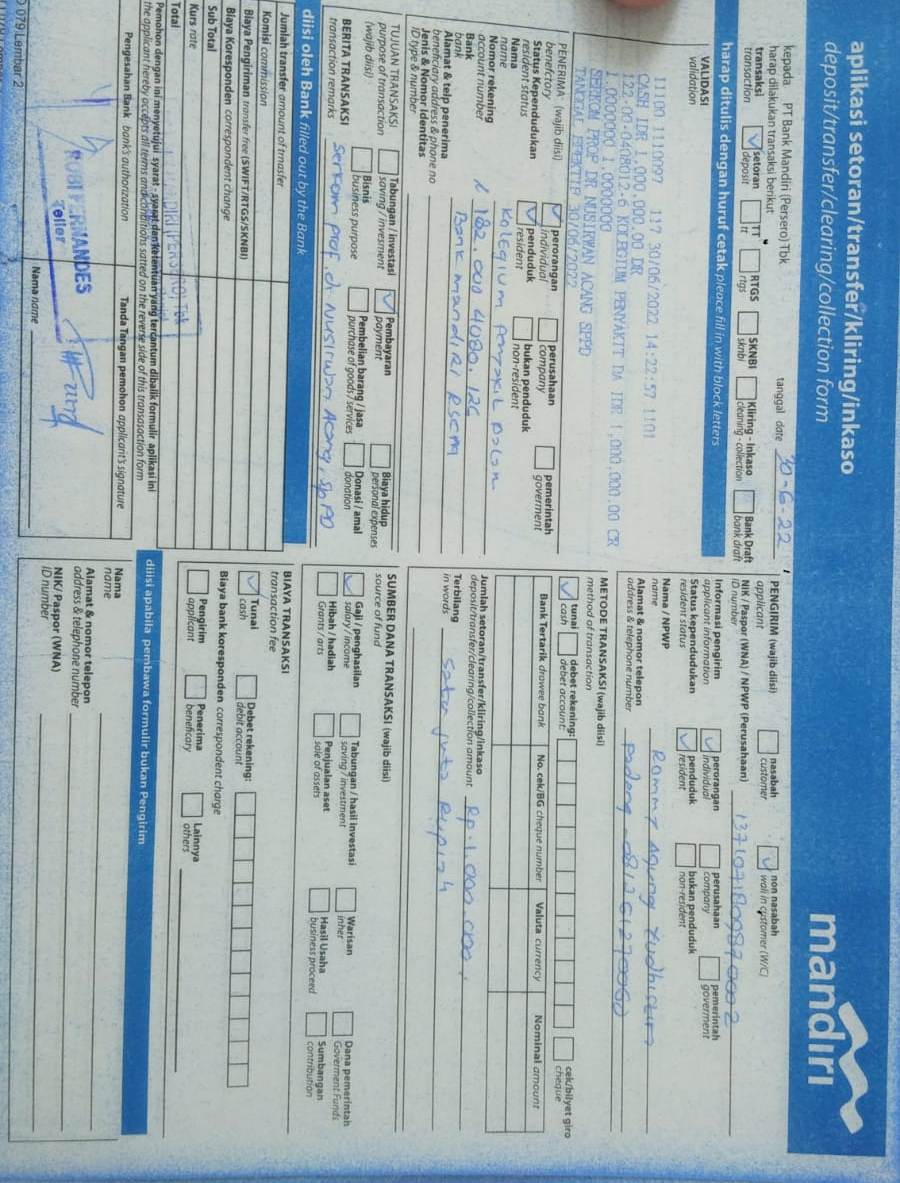 aplikasi setoran/transfer/kliring/inkaso
deposit/transfer/clearing/collection form
mandırı
kepada PT Bank Mandiri (Persero) Tbk
harap dilakukan transaksi berikut
tanggal date 30-6-22
transaksi
transaction
setoran
deposit
TT
tt
RTGS
rtgs
SKNBI
sknbi
Kliring - Inkaso
cleaning - collection
Bank Draft
bank draft
harap ditulis dengan huruf cetak please fill in with block letters
VALIDASI
validation
11100 1110097 117 30/06/2022 14:22:57 1101
CASH IDR 1,000,000.00 DR
122-00-0408012-6 KOLEGIUM PENYAKIT DA IDR 1,000,000.00 CR
1.0000000 1.0000000
SERKOM PROF DR NUSIRWAN ACANG SPPD
TANGGAL EFEKTIF 30/06/2022
PENERIMA (wajib diisi)
benefctory
perorangan
individual
perusahaan
company
pemerintah
goverment
Status Kependudukan
resident status
penduduk
resident
bukan penduduk
non-resident
Nama
name
Kolegium Penyakit Dalam
Nomor rekening
account number
122.000 4080.126
Bank
bank
Bank mandiRI RScm
Alamat & telp penerima
beneficiary address & phone no
Jenis & Nomor identitas
ID type & number
TUJUAN TRANSAKSI
purpose of transaction
(wajib diisi)
Tabungan / investasi
saving / invesment
Pembayaran
payment
Biaya hidup
personal expenses
Bisnis
business purpose
Pembelian barang / jasa
purchase of goods / services
Donasi / amal
donation
BERITA TRANSAKSI
transaction remarks
Serkom prof. dr Nusirwan Acang, Sp PD
diisi oleh Bank filled out by the Bank
Jumlah transfer amount of trnasfer
Komisi commission
Biaya Pengiriman transfer free (SWIFT/RTGS/SKNBI)
Biaya Koresponden correspondent change
Sub Total
Kurs rate
Total
Pemohon dengan ini menyetujui syarat - syarat dan ketentuan yang tercantum dibalik formulir aplikasi ini
the applicant hereby accepts all terms and conditions satted on the reverse side of this transasaction form
Pengesahan Bank bank's authorization
Tanda Tangan pemohon applicant's signature
FERNANDES
Teller
Nama name
079 Lembar 2
PENGIRIM (wajib diisi)
applicant
nasabah
customer
non nasabah
wali in customer (W/C)
NIK / Paspor (WNA) / NPWP (Perusahaan)
ID number
1371071809870002
Informasi pengirim
applicant information
perorangan
individual
perusahaan
company
pemerintah
goverment
Status kependudukan
resident status
penduduk
resident
bukan penduduk
non-resident
Nama / NPWP
name
Rommy Agung Yudhistira
Alamat & nomor telepon
address & telephone number
padang
METODE TRANSAKSI (wajib diisi)
method of transaction
tunai
cash
debet rekening:
debet account:
cek/bilyet giro
cheque
Bank Tertarik drawee bank
No. cek/BG cheque number
Valuta currency
Nominal amount
Jumlah setoran/transfer/kliring/inkaso
deposit/transfer/clearing/collection amount
Rp. 1.000.000,
Terbilang
in words
Satu juta Rupiah
SUMBER DANA TRANSAKSI (wajib diisi)
source of fund
Gaji / penghasilan
salary / income
Tabungan / hasil investasi
saving / investment
Warisan
inher
Dana pemerintah
Goverment Funds
Hibah / hadiah
Grants / arts
Penjualan aset
sale of assets
Hasil Usaha
business proceed
Sumbangan
contribution
BIAYA TRANSAKSI
transaction fee
Tunai
cash
Debet rekening:
debit account
Biaya bank koresponden correspondent charge
Pengirim
applicant
Penerima
beneficary
Lainnya
others
diisi apabila pembawa formulir bukan Pengirim
Nama
name
Alamat & nomor telepon
address & telephone number
NIK/ Paspor (WNA)
ID number